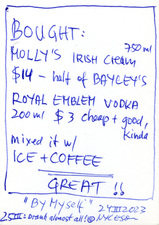 BOUGHT:
750 ml
MOLLY'S IRISH CREAM
$14 - half of BAYLEY'S
ROYAL EMBLEM VODKA
200 ml $3 cheap + good,
kinda
mixed it w/
ICE + COFFEE
GREAT !!
"By Myself" 27III2023
28III: drank almost all!@NYCESH